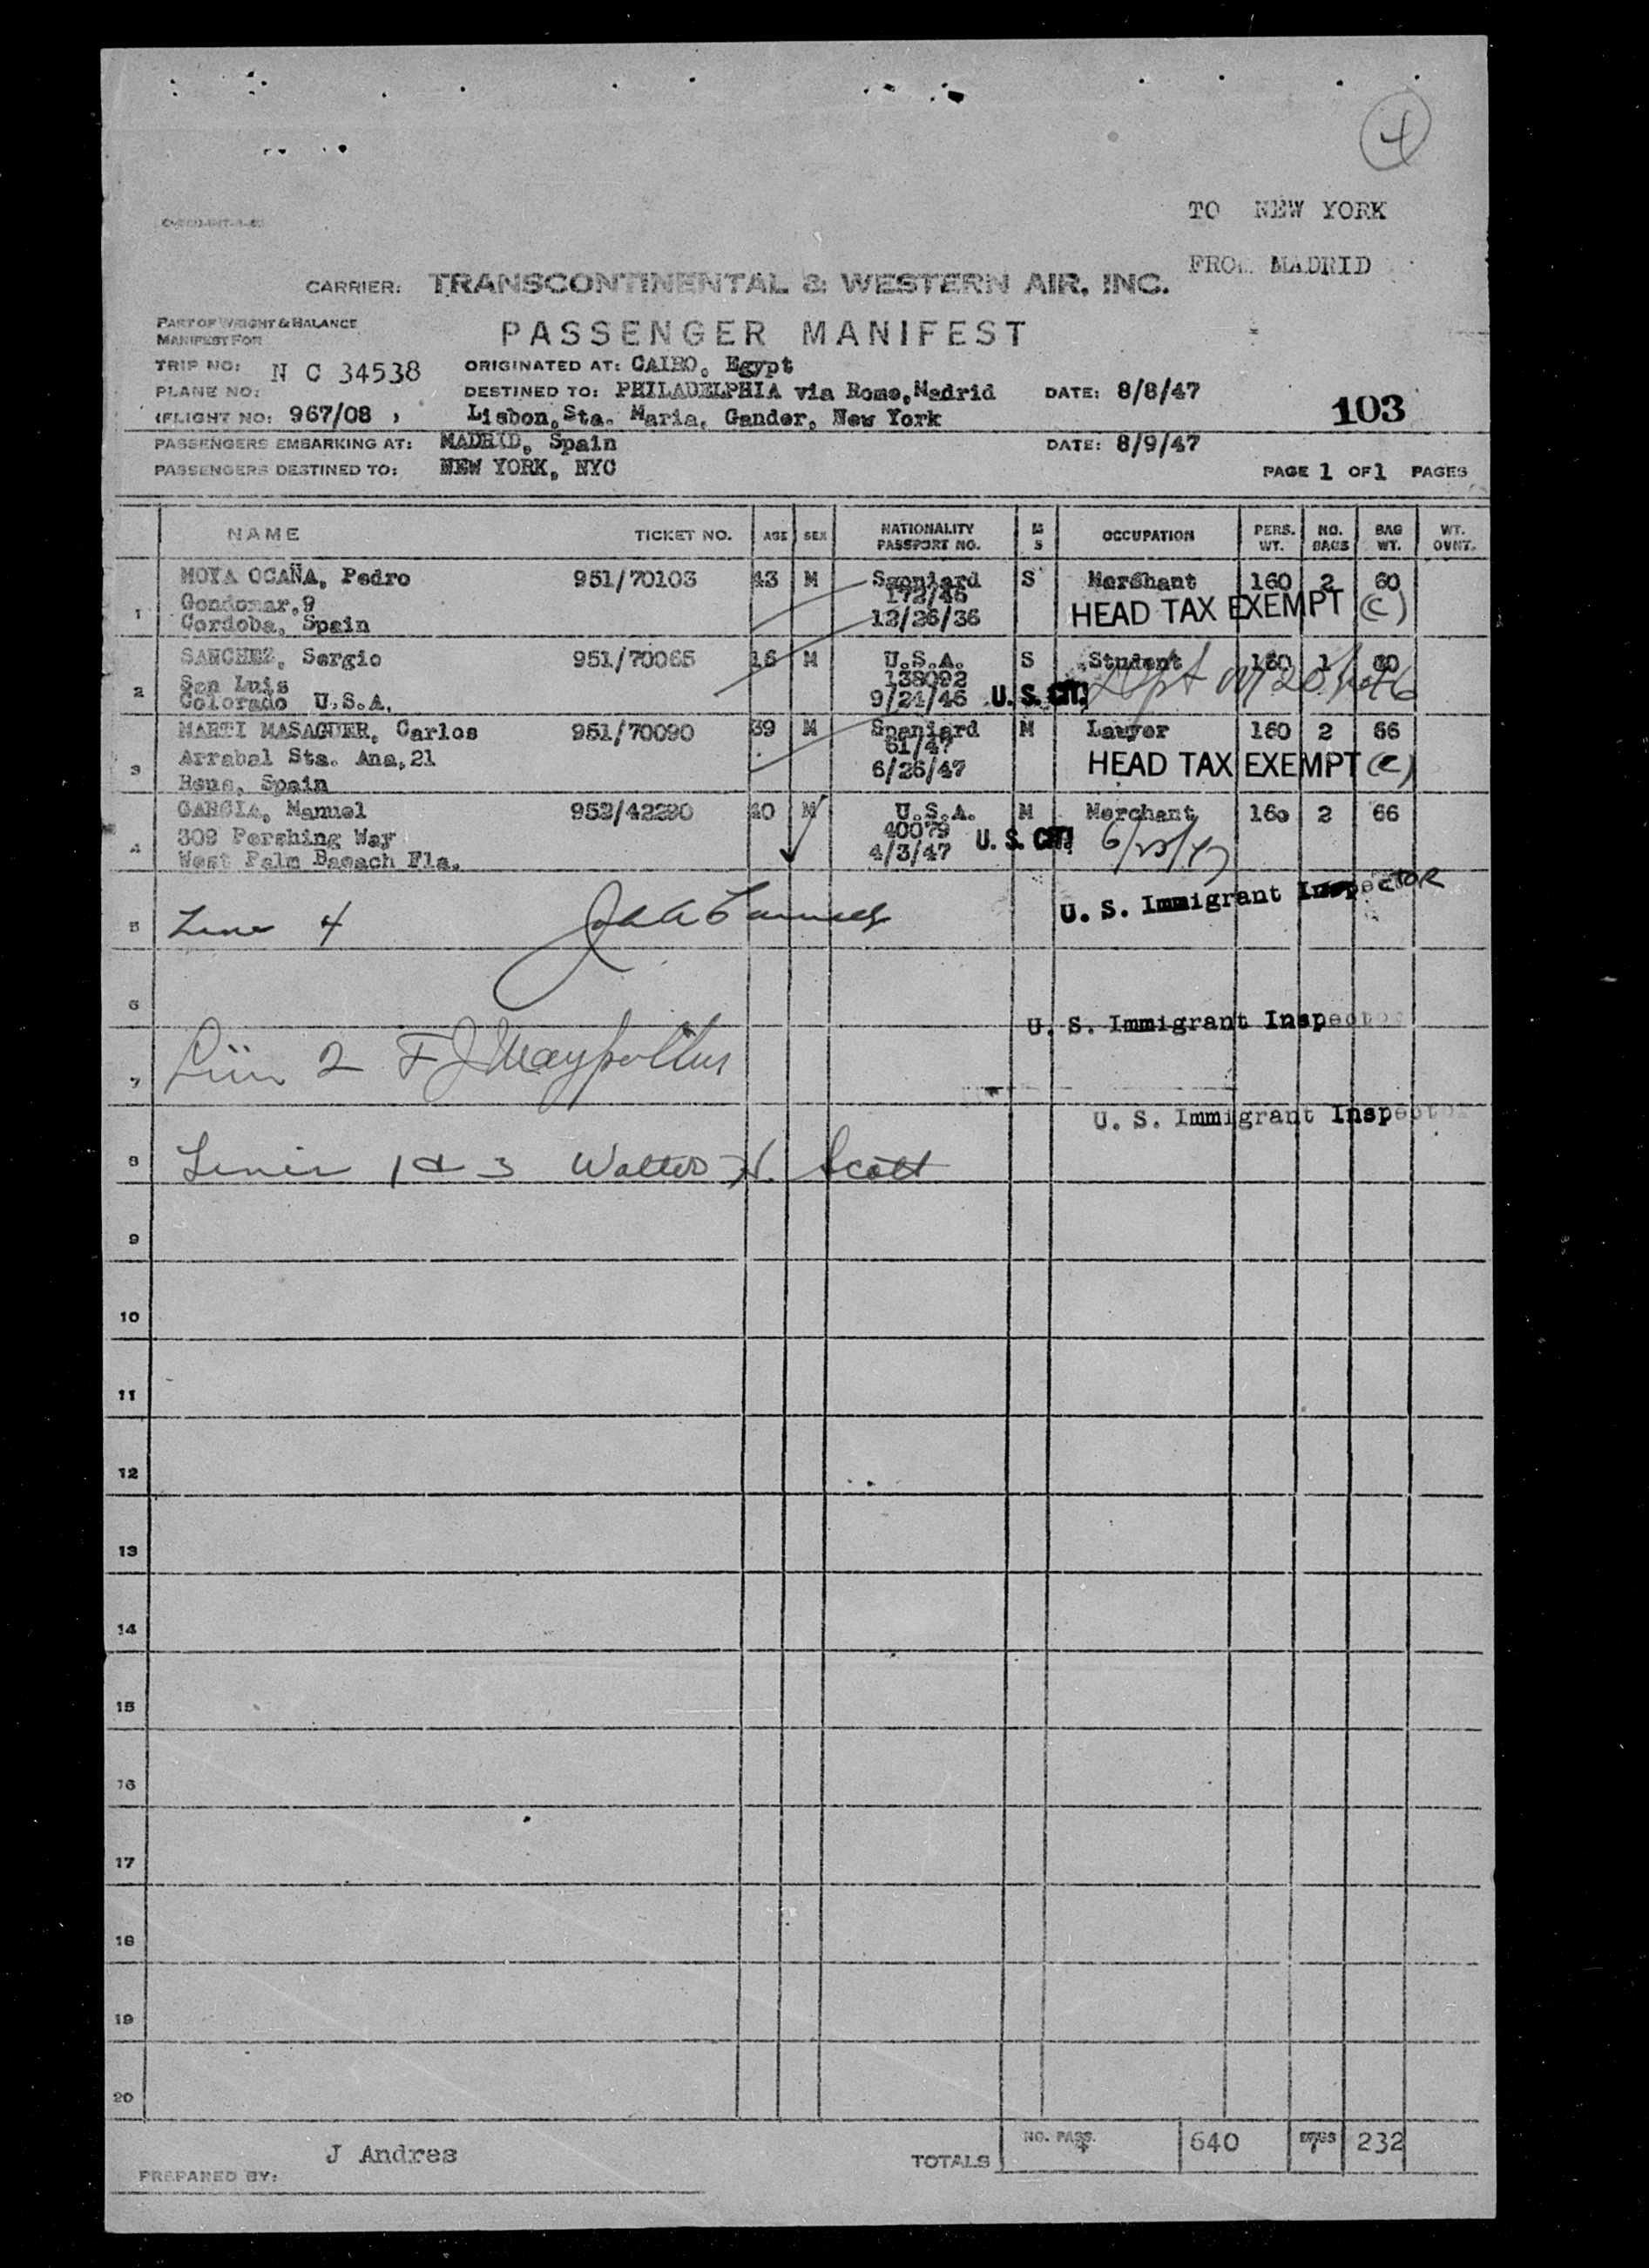 4
TO NEW YORK
FROM MADRID
CARRIER: TRANSCONTINENTAL & WESTERN AIR, INC.
PART OF WEIGHT & BALANCE
MANIFEST FOR
PASSENGER MANIFEST
TRIP NO: N C 34538 ORIGINATED AT: CAIRO, Egypt
PLANE NO: DESTINED TO: PHILADELPHIA via Rome, Madrid DATE: 8/8/47
(FLIGHT NO: 967/08 , Lisbon, Sta. Maria, Gander, New York 103
PASSENGERS EMBARKING AT: MADRID, Spain DATE: 8/9/47
PASSENGERS DESTINED TO: NEW YORK, NYC PAGE 1 OF 1 PAGES
NAME TICKET NO. AGE SEX NATIONALITY PASSPORT NO. M S OCCUPATION PERS. WT. NO. BAGS BAG WT. WT. OVNT.
MOYA OCAÑA, Pedro 951/70103 43 M Spaniard S Merchant 160 2 60
Gondomar, 9 172/46 HEAD TAX EXEMPT (C)
1 Cordoba, Spain 12/26/36
SANCHEZ, Sergio 951/70065 16 M U.S.A. S Student 160 1
San Luis 138092
2 Colorado U.S.A. 9/24/46 U. S. CIT.
MARTI MASAGUER, Carlos 951/70090 39 M Spaniard M Lawyer 160 2 66
Arrabal Sta. Ana, 21 61/47 HEAD TAX EXEMPT (C)
3 Reus, Spain 6/26/47
GARCIA, Manuel 952/42220 40 M U.S.A. M Merchant 160 2 66
309 Pershing Way 40079 U. S. CIT.
4 West Palm Baeach Fla. 4/3/47
U. S. Immigrant Inspector
5 Line 4
6
U. S. Immigrant Inspector
7 Line 2
U. S. Immigrant Inspector
8 Lines 1 & 3 Walter H. Scott
9
10
11
12
13
14
15
16
17
18
19
20
J Andres
PREPARED BY:
TOTALS NO. PASS. 4 640 BAGS 7 232